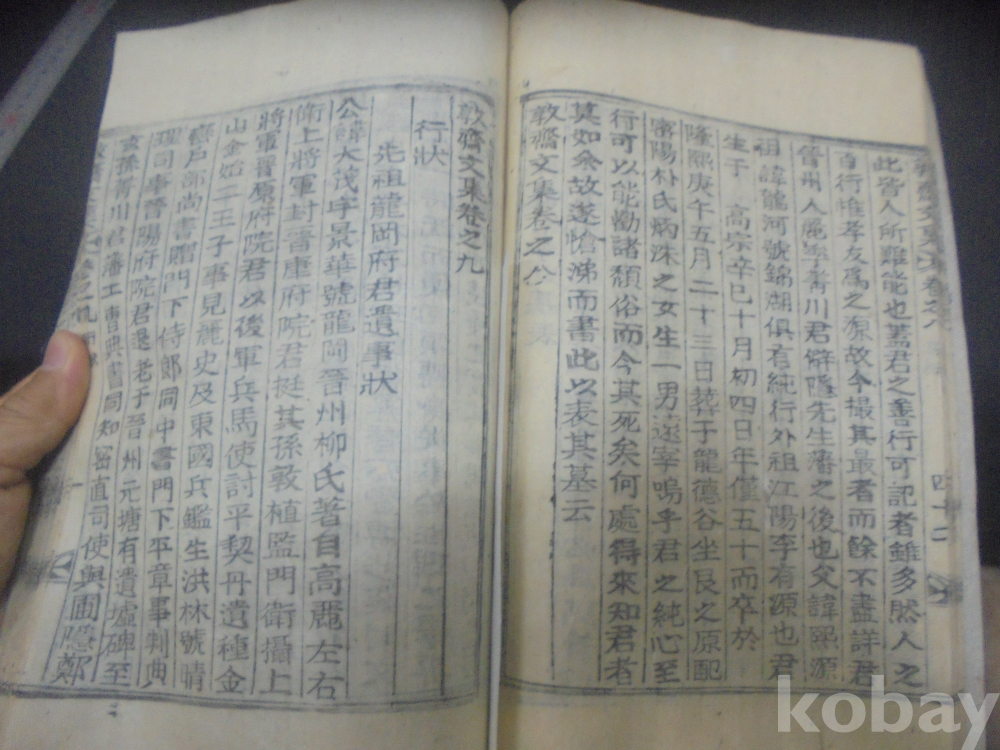 此皆人所難能也蓋君之善行可記者雖多然人之
百行惟孝友爲之源故今撮其最者而餘不盡詳君
晉州人麗季菁川君僻隱先生藩之後也父諱熙源
祖諱龍河號錦湖俱有純行外祖江陽李有源也君
生于 高宗辛巳十月初四日年僅五十而卒於
隆熙庚午五月二十三日葬于龍德谷坐艮之原配
密陽朴氏炳洙之女生一男遠宰嗚乎君之純心至
行可以能勸諸頹俗而今其死矣何處得來知君者
莫如余故遂愴涕而書此以表其墓云
敦齋文集卷之八
四十二
敦齋文集卷之九
行狀
先祖龍岡府君遺事狀
公諱大茂字景華號龍岡晉州柳氏著自高麗左右
衛上將軍封晉康府院君挺其孫敦植監門衛攝上
將軍晉原府院君以後軍兵馬使討平契丹遺種金
山金始二王子事見麗史及東國兵鑑生洪林號晴
巒戶部尚書贈門下侍郎同中書門下平章事判典
理司事晉陽府院君退老于晉州元塘有遺墟碑至
玄孫菁川君藩工曹典書同知密直司使與圃隱鄭
kobay